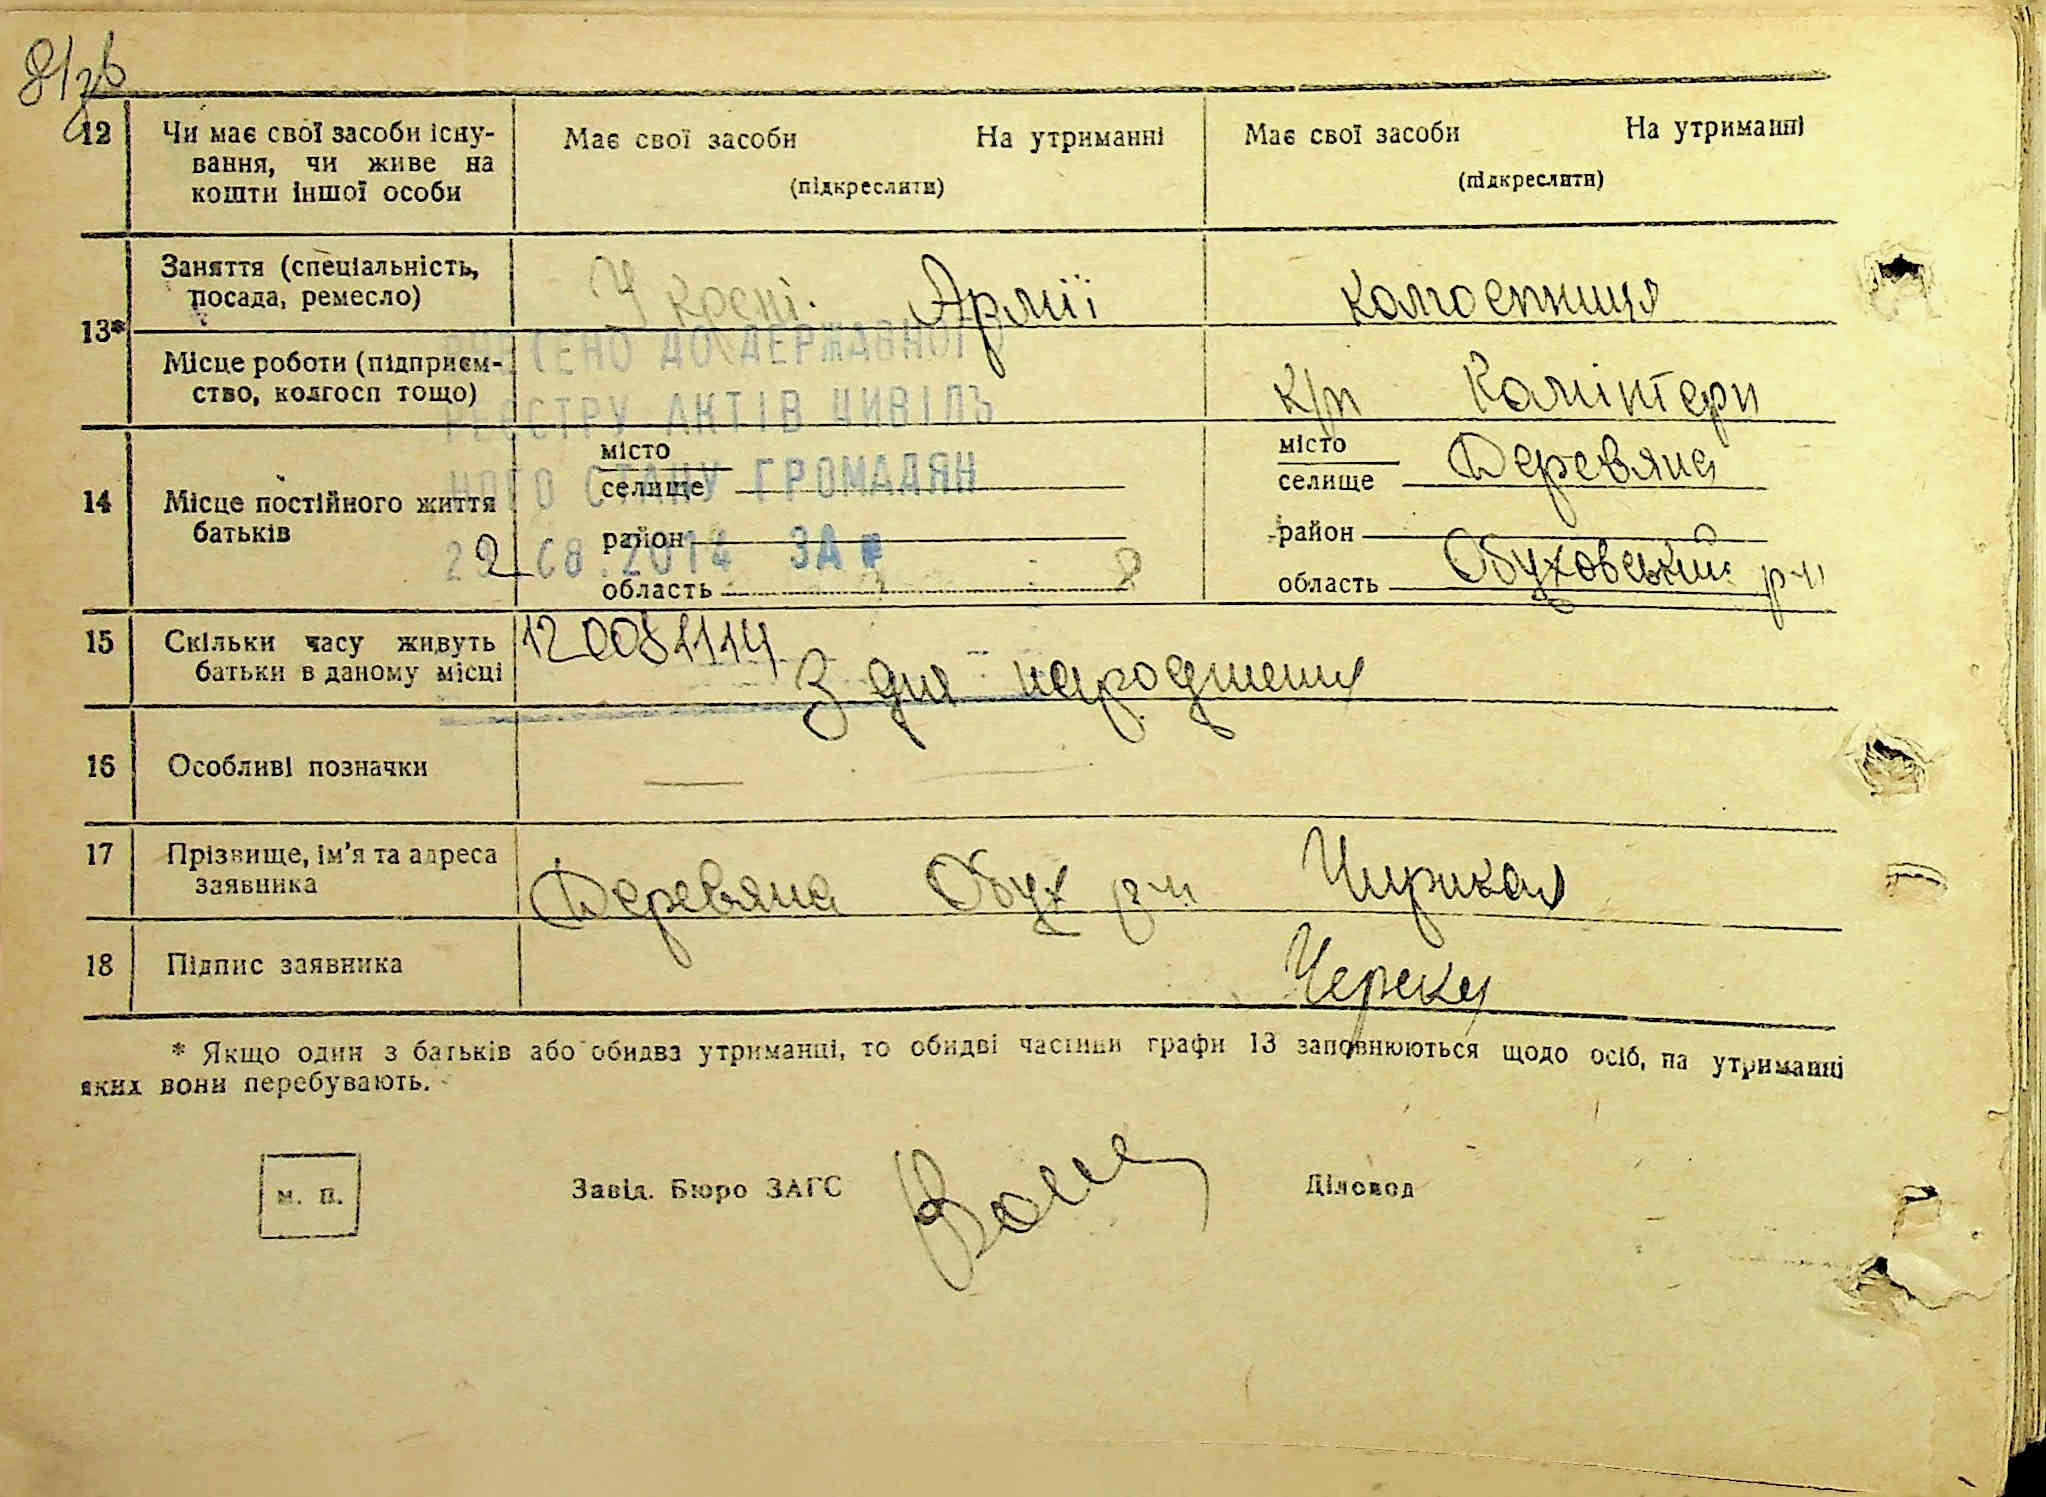 81зв
12 Чи має свої засоби існу-
вання, чи живе на
кошти іншої особи
Має свої засоби На утриманні
(підкреслити)
Має свої засоби На утриманні
(підкреслити)
13*
Заняття (спеціальність,
посада, ремесло)
У Красні. Армії
колгоспниця
Місце роботи (підприєм-
ство, колгосп тощо)
к/г Комінтерн
ВНЕСЕНО ДО ДЕРЖАВНОГО
РЕЄСТРУ АКТІВ ЦИВІЛЬ
НОГО СТАНУ ГРОМАДЯН
22.08.2014 ЗА №
14 Місце постійного життя
батьків
місто
селище
район
область
місто
селище Деревяна
район
область Обуховський р-н
15 Скільки часу живуть
батьки в даному місці
12008114
З дня народження
16 Особливі позначки —
17 Прізвище, ім'я та адреса
заявника
Деревяна Обух р-н
18 Підпис заявника
* Якщо один з батьків або обидва утриманці, то обидві частини графи 13 заповнюються щодо осіб, на утриманні
яких вони перебувають.
м. п.
Завід. Бюро ЗАГС
Діловод